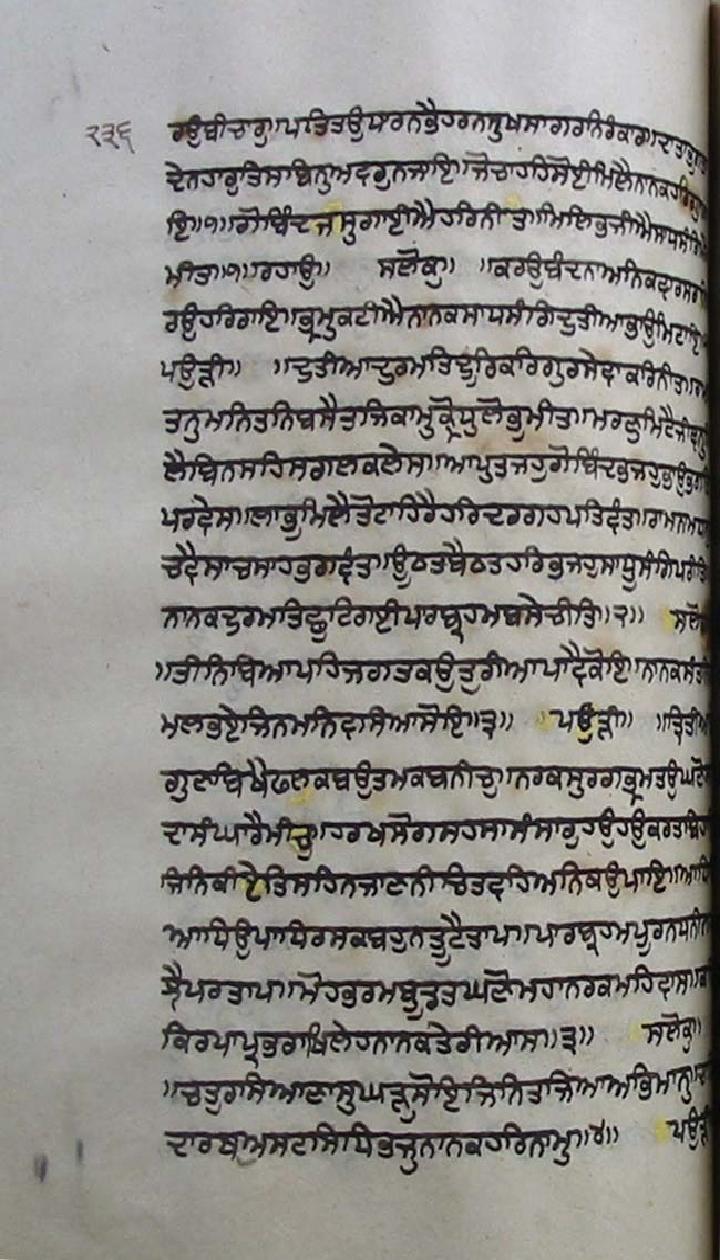 ੨੩੬
ਰਉਬੀਚਾਰੁ॥ਪਤਿਤਉਧਾਰਨਭੈਹਰਨਸੁਖਸਾਗਰਨਿਰੰਕਾਰ॥ਦਾਤਾ
ਦੇਨਹਾਰੁਤਿਸਬਿਨੁਅਵਰੁਨਜਾਇ॥ਜੋਚਾਹਹਿਸੋਈਮਿਲੈਨਾਨਕਹਰਿ
ਇ॥੧॥ਗੋਬਿੰਦਜਸੁਗਾਈਐਹਰਿਨੀਤ॥ਮਿਲਿਭਜੀਐਸਾਧਸੰਗਿ
ਮੀਤਾ॥੧॥ਰਹਾਉ॥ ਸਲੋਕੁ॥ ॥ਕਰਉਬੰਦਨਾਅਨਿਕਵਾਰਸਰਨਿ
ਰਉਹਰਿਰਾਇ॥ਭ੍ਰਮੁਕਟੀਐਨਾਨਕਸਾਧਸੰਗਿਦੁਤੀਆਭਾਉਮਿਟਾਇ
ਪਉੜੀ॥ ॥ਦੁਤੀਆਦੁਰਮਤਿਦੂਰਿਕਰਿਗੁਰਸੇਵਾਕਰਿਨੀਤ॥ਰਾਮ
ਤਨੁਮਨਿਤਨਿਬਸੈਤਜਿਕਾਮੁਕ੍ਰੋਧੁਲੋਭੁਮੀਤ॥ਮਰਣੁਮਿਟੈਜੀਵਨੁ
ਲੈਬਿਨਸਹਿਸਗਲਕਲੇਸ॥ਆਪੁਤਜਹੁਗੋਬਿੰਦਭਜਹੁਭਾਉਭਗਤਿ
ਪਰਵੇਸ॥ਲਾਭੁਮਿਲੈਤੋਟਾਹਿਰੈਹਰਿਦਰਗਹਪਤਿਵੰਤ॥ਰਾਮਨਾਮਧਨੁ
ਚੰਵੈਸਾਚਸਾਹਭਗਵੰਤ॥ਊਠਤਬੈਠਤਹਰਿਭਜਹੁਸਾਧੂਸੰਗਿਪਰੀਤਿ
ਨਾਨਕਦੁਰਮਤਿਛੁਟਿਗਈਪਾਰਬ੍ਰਹਮਬਸੇਚੀਤਿ॥੨॥ ਸਲੋਕੁ
॥ਤੀਨਿਬਿਆਪਹਿਜਗਤਕਉਤੁਰੀਆਪਾਵੈਕੋਇ॥ਨਾਨਕਸੰਤ
ਮਲਭਏਜਿਨਮਨਿਵਸਿਆਸੋਇ॥੩॥ ਪਉੜੀ॥ ॥ਤ੍ਰਿਤੀਆ
ਗੁਣਬਿਖੈਫਲਕਬਉਤਮਕਬਨੀਚੁ॥ਨਰਕਸੁਰਗਭ੍ਰਮਤਉਘਣੋ
ਦਾਸੰਘਾਰੈਮੀਚੁ॥ਹਰਖਸੋਗਸਹਸਾਸੰਸਾਰੁਹਉਹਉਕਰਤਬਿਹਾਇ
ਜਿਨਿਕੀਏਤਿਸਹਿਨਜਾਣਨੀਚਿਤਵਹਿਅਨਿਕਉਪਾਇ॥ਆਧਿ
ਆਧਿਉਪਾਧਿਰਸਕਬਹੁਨਤੂਟੈਤਾਪ॥ਪਾਰਬ੍ਰਹਮਪੂਰਨਧਨੀ
ਝੈਪਰਤਾਪ॥ਮੋਹਭਰਮਬੂਡਤਘਣੋਮਹਾਨਰਕਮਹਿਵਾਸ॥ਕਰਿ
ਕਿਰਪਾਪ੍ਰਭਰਾਖਿਲੇਹਨਾਨਕਤੇਰੀਆਸ॥੩॥ ਸਲੋਕੁ॥
॥ਚਤੁਰਸਿਆਣਾਸੁਘੜੁਸੋਇਜਿਨਿਤਜਿਆਅਭਿਮਾਨੁ॥ਚਾਰਿ
ਦਾਰਥਅਸਟਸਿਧਿਭਜੁਨਾਨਕਹਰਿਨਾਮੁ॥੪॥ ਪਉੜੀ